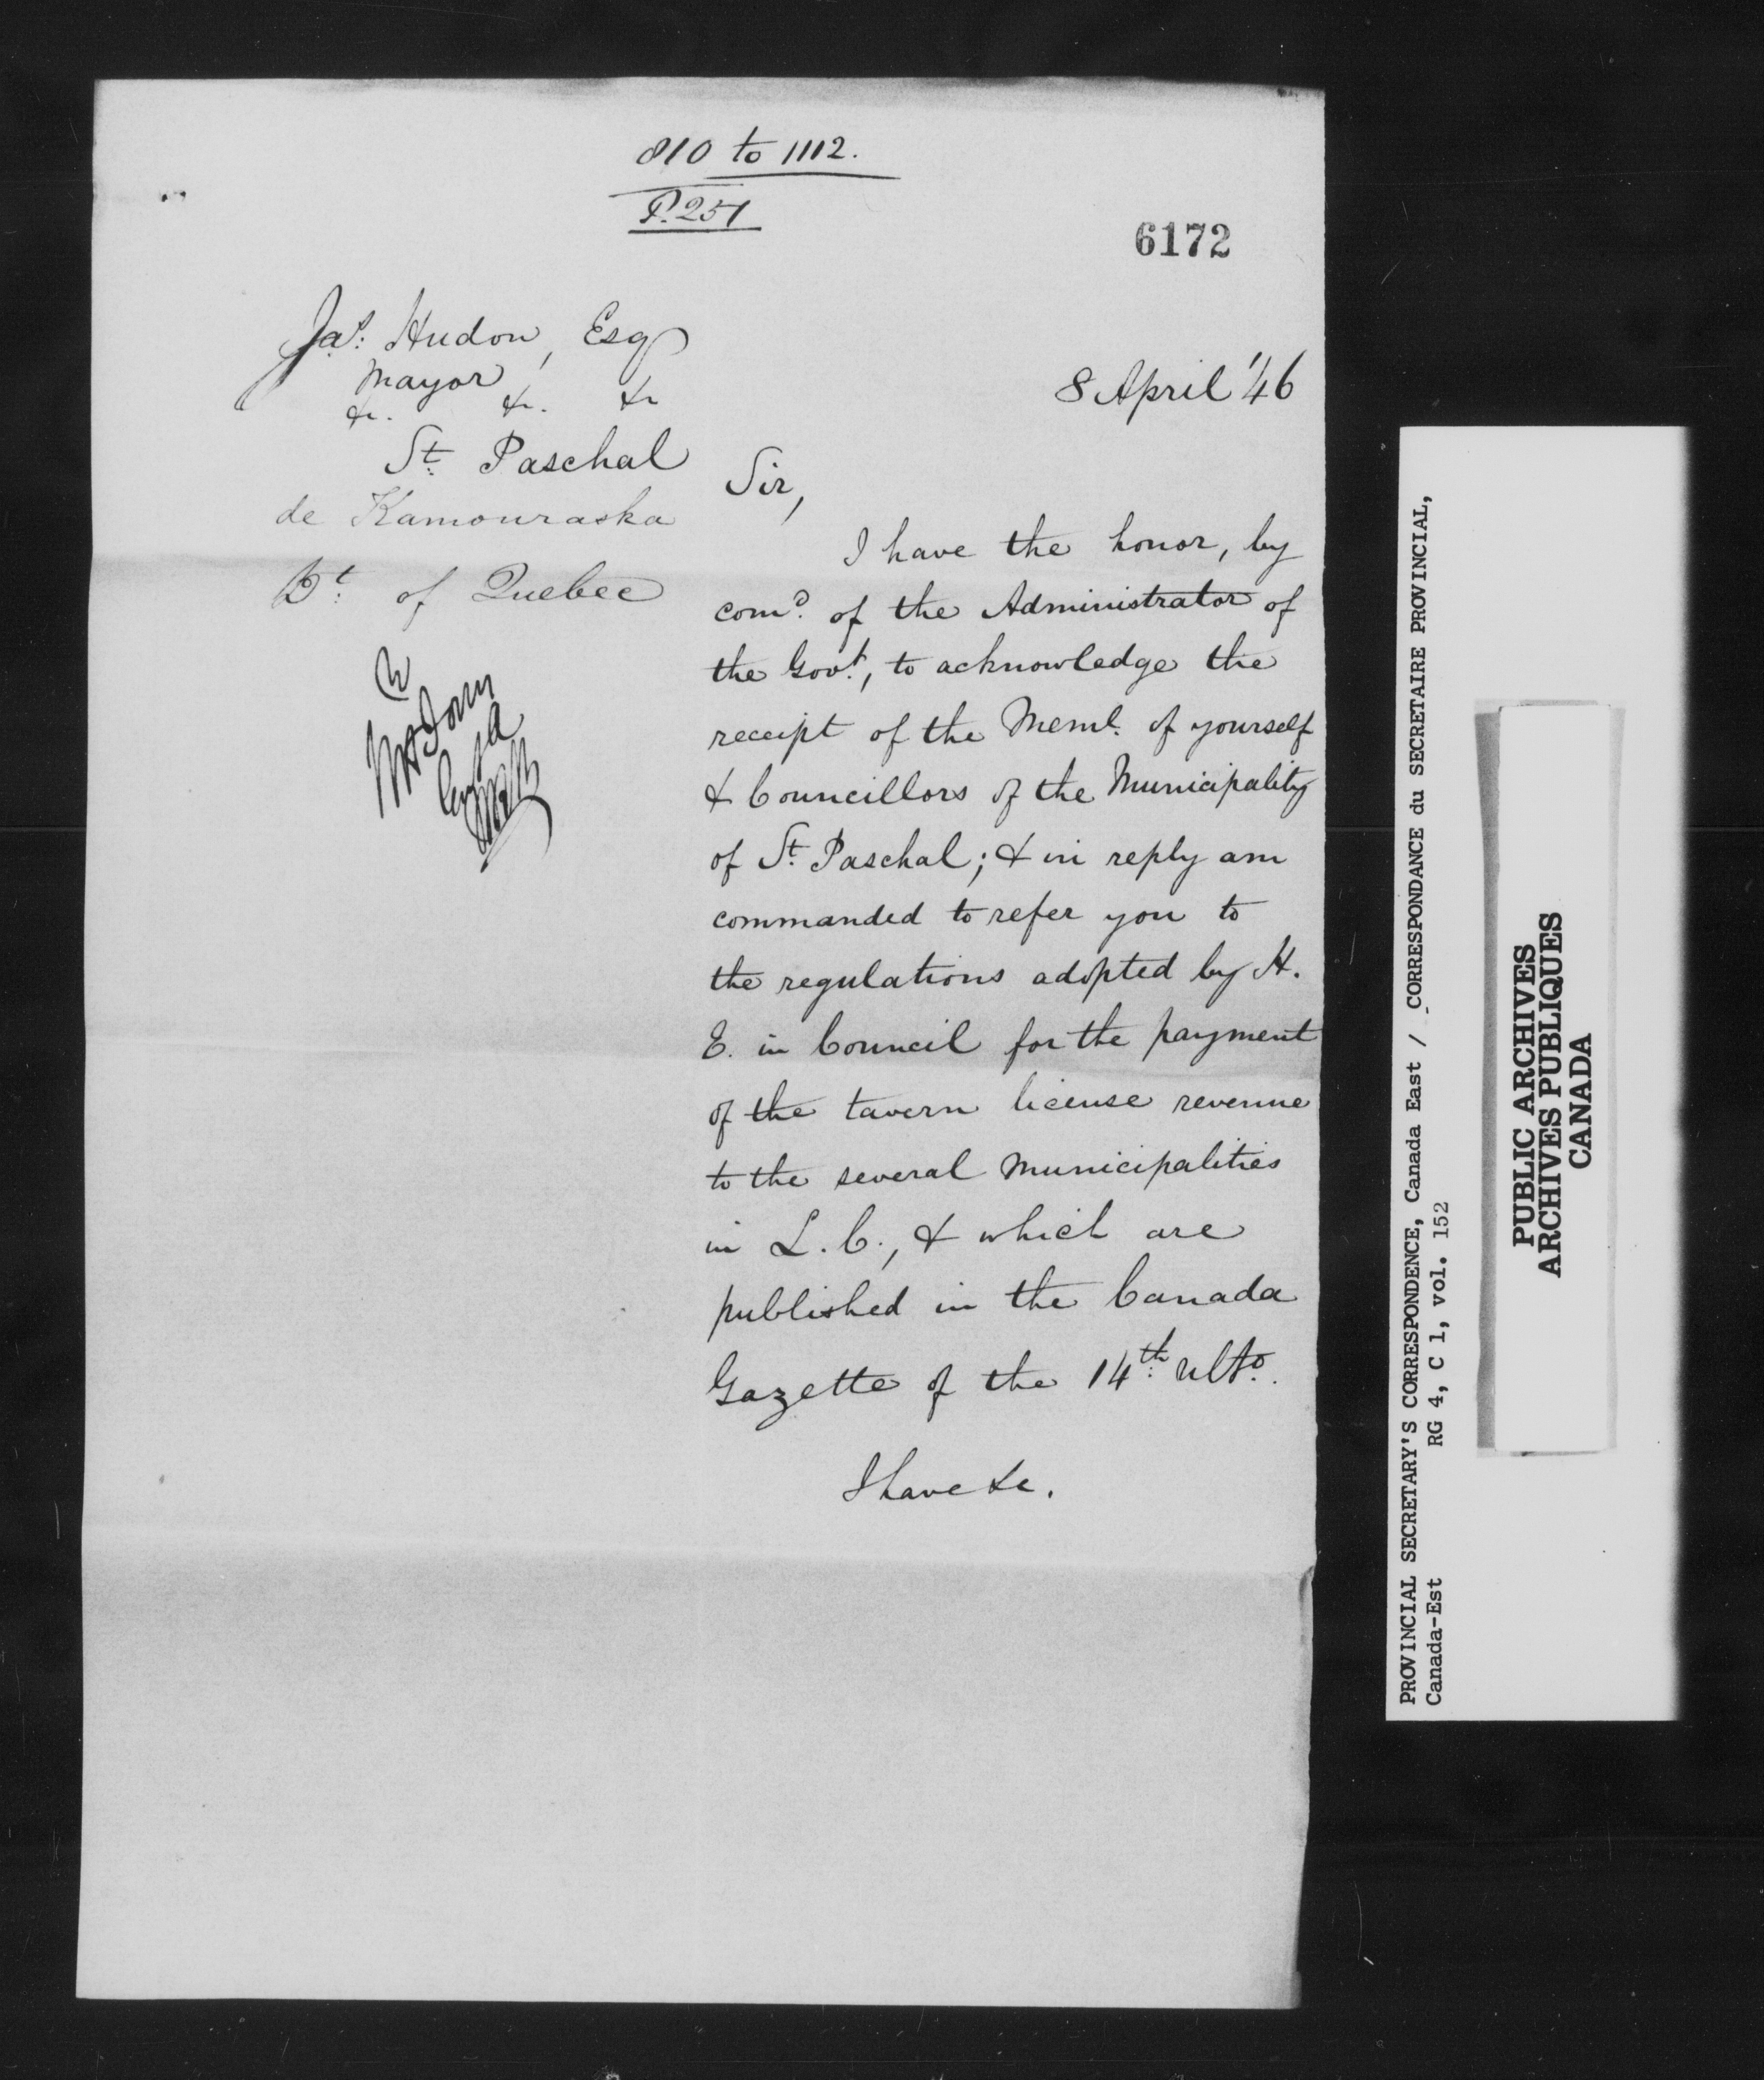 810 to 1112.
P. 251
6172
Jas. Hudon, Esq
Mayor
&c. &c. &c
St. Paschal
de Kamouraska
Dt. of Quebec
8 April '46
Sir,
I have the honor, by
comd. of the Administrator of
the Govt., to acknowledge the
receipt of the Meml. of yourself
& Councillors of the Municipality
of St. Paschal; & in reply am
commanded to refer you to
the regulations adopted by H.
E. in Council for the payment
of the tavern license revenue
to the several Municipalities
in L. C., & which are
published in the Canada
Gazette of the 14th. ulto.
I have &c.
PROVINCIAL SECRETARY'S CORRESPONDENCE, Canada East / CORRESPONDANCE du SECRETAIRE PROVINCIAL,
Canada-Est RG 4, C 1, vol. 152
PUBLIC ARCHIVES
ARCHIVES PUBLIQUES
CANADA